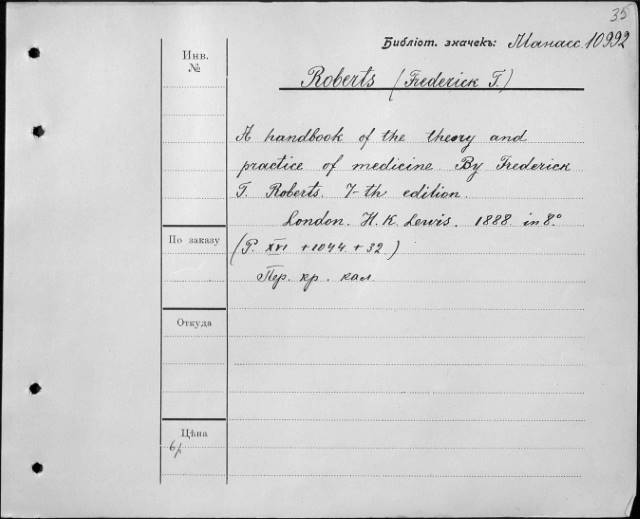 35
Библіот. значекъ: Манасс. 10992
Инв.
№
Roberts (Frederick T.)
A handbook of the theory and
practice of medicine. By Frederick
T. Roberts. 7-th edition.
London. H. K. Lewis. 1888. in 8.°
По заказу
(P. XVI + 1044 + 32)
Пер. кр. кал.
Откуда
Цѣна
6р